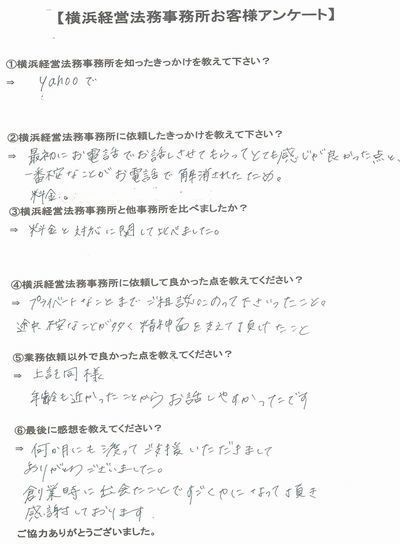 【横浜経営法務事務所お客様アンケート】
①横浜経営法務事務所を知ったきっかけを教えて下さい？
⇒ yahooで
②横浜経営法務事務所に依頼したきっかけを教えて下さい？
⇒ 最初にお電話でお話しさせてもらってとても感じが良かった点と、
一番不安なことがお電話で解消されたため。
料金。
③横浜経営法務事務所と他事務所を比べましたか？
⇒ 料金と対応に関して比べました。
④横浜経営法務事務所に依頼して良かった点を教えてください？
⇒ プライベートなことまでご相談にのって下さったこと。
途中不安なことが多く精神面を支えて頂けたこと
⑤業務依頼以外で良かった点を教えてください？
⇒ 上記同様
年齢も近かったことからお話しやすかったです
⑥最後に感想を教えてください？
⇒ 何か月にも渡ってご支援いただきまして
ありがとうございました。
創業時に出会えたことですごく になって頂き
感謝しております
ご協力ありがとうございました。